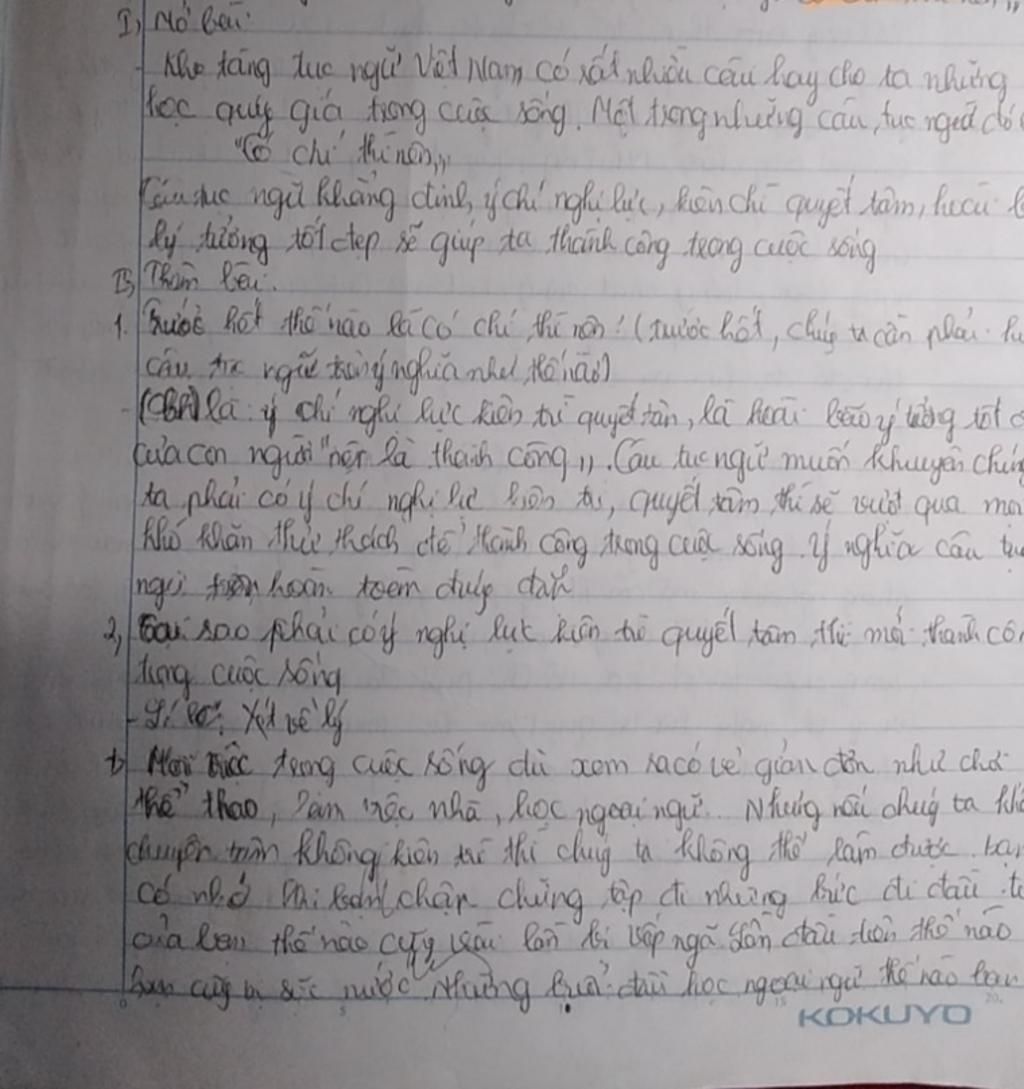 I, Mở bài:
- Kho tàng tục ngữ Việt Nam có rất nhiều câu hay cho ta những
học quý giá trong cuộc sống. Một trong những câu, tục ngữ đó
"Có chí thì nên,,
Câu tục ngữ khẳng định, ý chí nghị lực, kiên chì quyết tâm, hoài
lý tưởng tốt đẹp sẽ giúp ta thành công trong cuộc sống
Thân bài.
1. Trước hết thế nào là có chí thì nên! (trước hết, chúng ta cần phải
câu tục ngữ ý nghĩa như thế nào)
- là ý chí nghị lực kiên trì quyết tân, là hoài bão ý tưởng tốt
của con người "nên là thành công,,. Câu tục ngữ muốn khuyên chúng
ta phải có ý chí nghị lực kiên trì, quyết tâm thì sẽ vượt qua mọi
khó khăn thử thách để thành công trong cuộc sống. ý nghĩa câu tục
ngữ trên hoàn toàn đúng đắn
2, Tại sao phải có ý nghị lực kiên trì quyết tâm thì mới thành công
trong cuộc sống
- Xét về lý
Mọi việc trong cuộc sống dù xem ra có vẻ giản đơn như chơi
thể thao, làm việc nhà, học ngoại ngữ... Nhưng nếu chúng ta
không kiên trì thì chúng ta không thể làm được. bạn
có nhớ chập chững tập đi những bước đi đầu
của bạn thế nào cũng lần bị vấp ngã lần đầu tiên thế nào
bạn cũng bị sặc nước. Những buổi đầu học ngoại ngữ thế nào bạn
KOKUYO